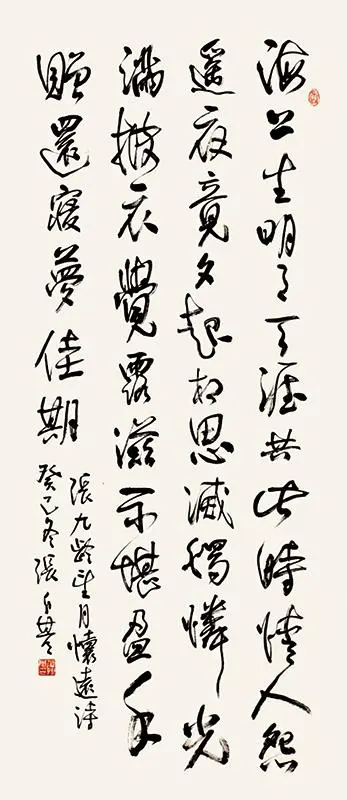 海上生明月天涯共此時情人怨
遙夜竟夕起相思滅燭憐光
滿披衣覺露滋不堪盈手
贈還寢夢佳期
張九齡望月懷遠詩
癸巳冬張